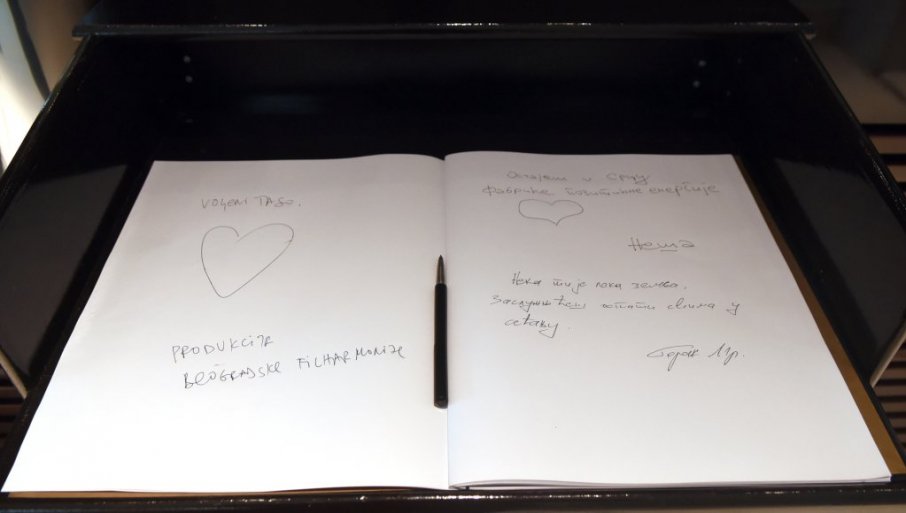 VOLJENI TASO.
PRODUKCIJA
BEOGRADSKE FILHARMONIJE
Остајем у Срцу
фабрике позитивне енергије
Неша
Нека ти је лака земља.
Заслужићеш остати свима у
сећању.